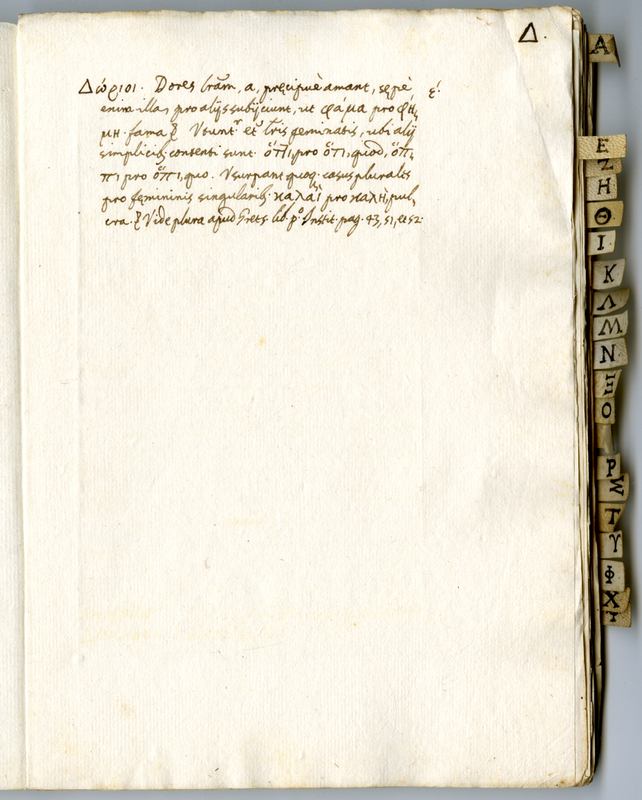 Δ.
Δώριοι. Dores lr̃am, a, pręcipuè amant, sępè
έ.
enim illam pro alijs subijciunt, ut φάμα pro φή,
μη. fama. Utunt̃ et lr̃is geminatis, ubi alij
simplicib; contenti sunt. ὅττι, pro ὅτι, quod, ὅπ,
πι pro ὅπι, quo. Usurpant quoq; casus pluralis
pro fęmininis singularib; καλαὶ pro καλὴ, pul,
cra. Vide plura apud Grets. lib. pº. Instit. pag. 43, 51, et 52.
Α
Ε
Ζ
Η
Θ
Ι
Κ
Λ
Μ
Ν
Ξ
Ο
Ρ
Σ
Τ
Υ
Φ
Χ